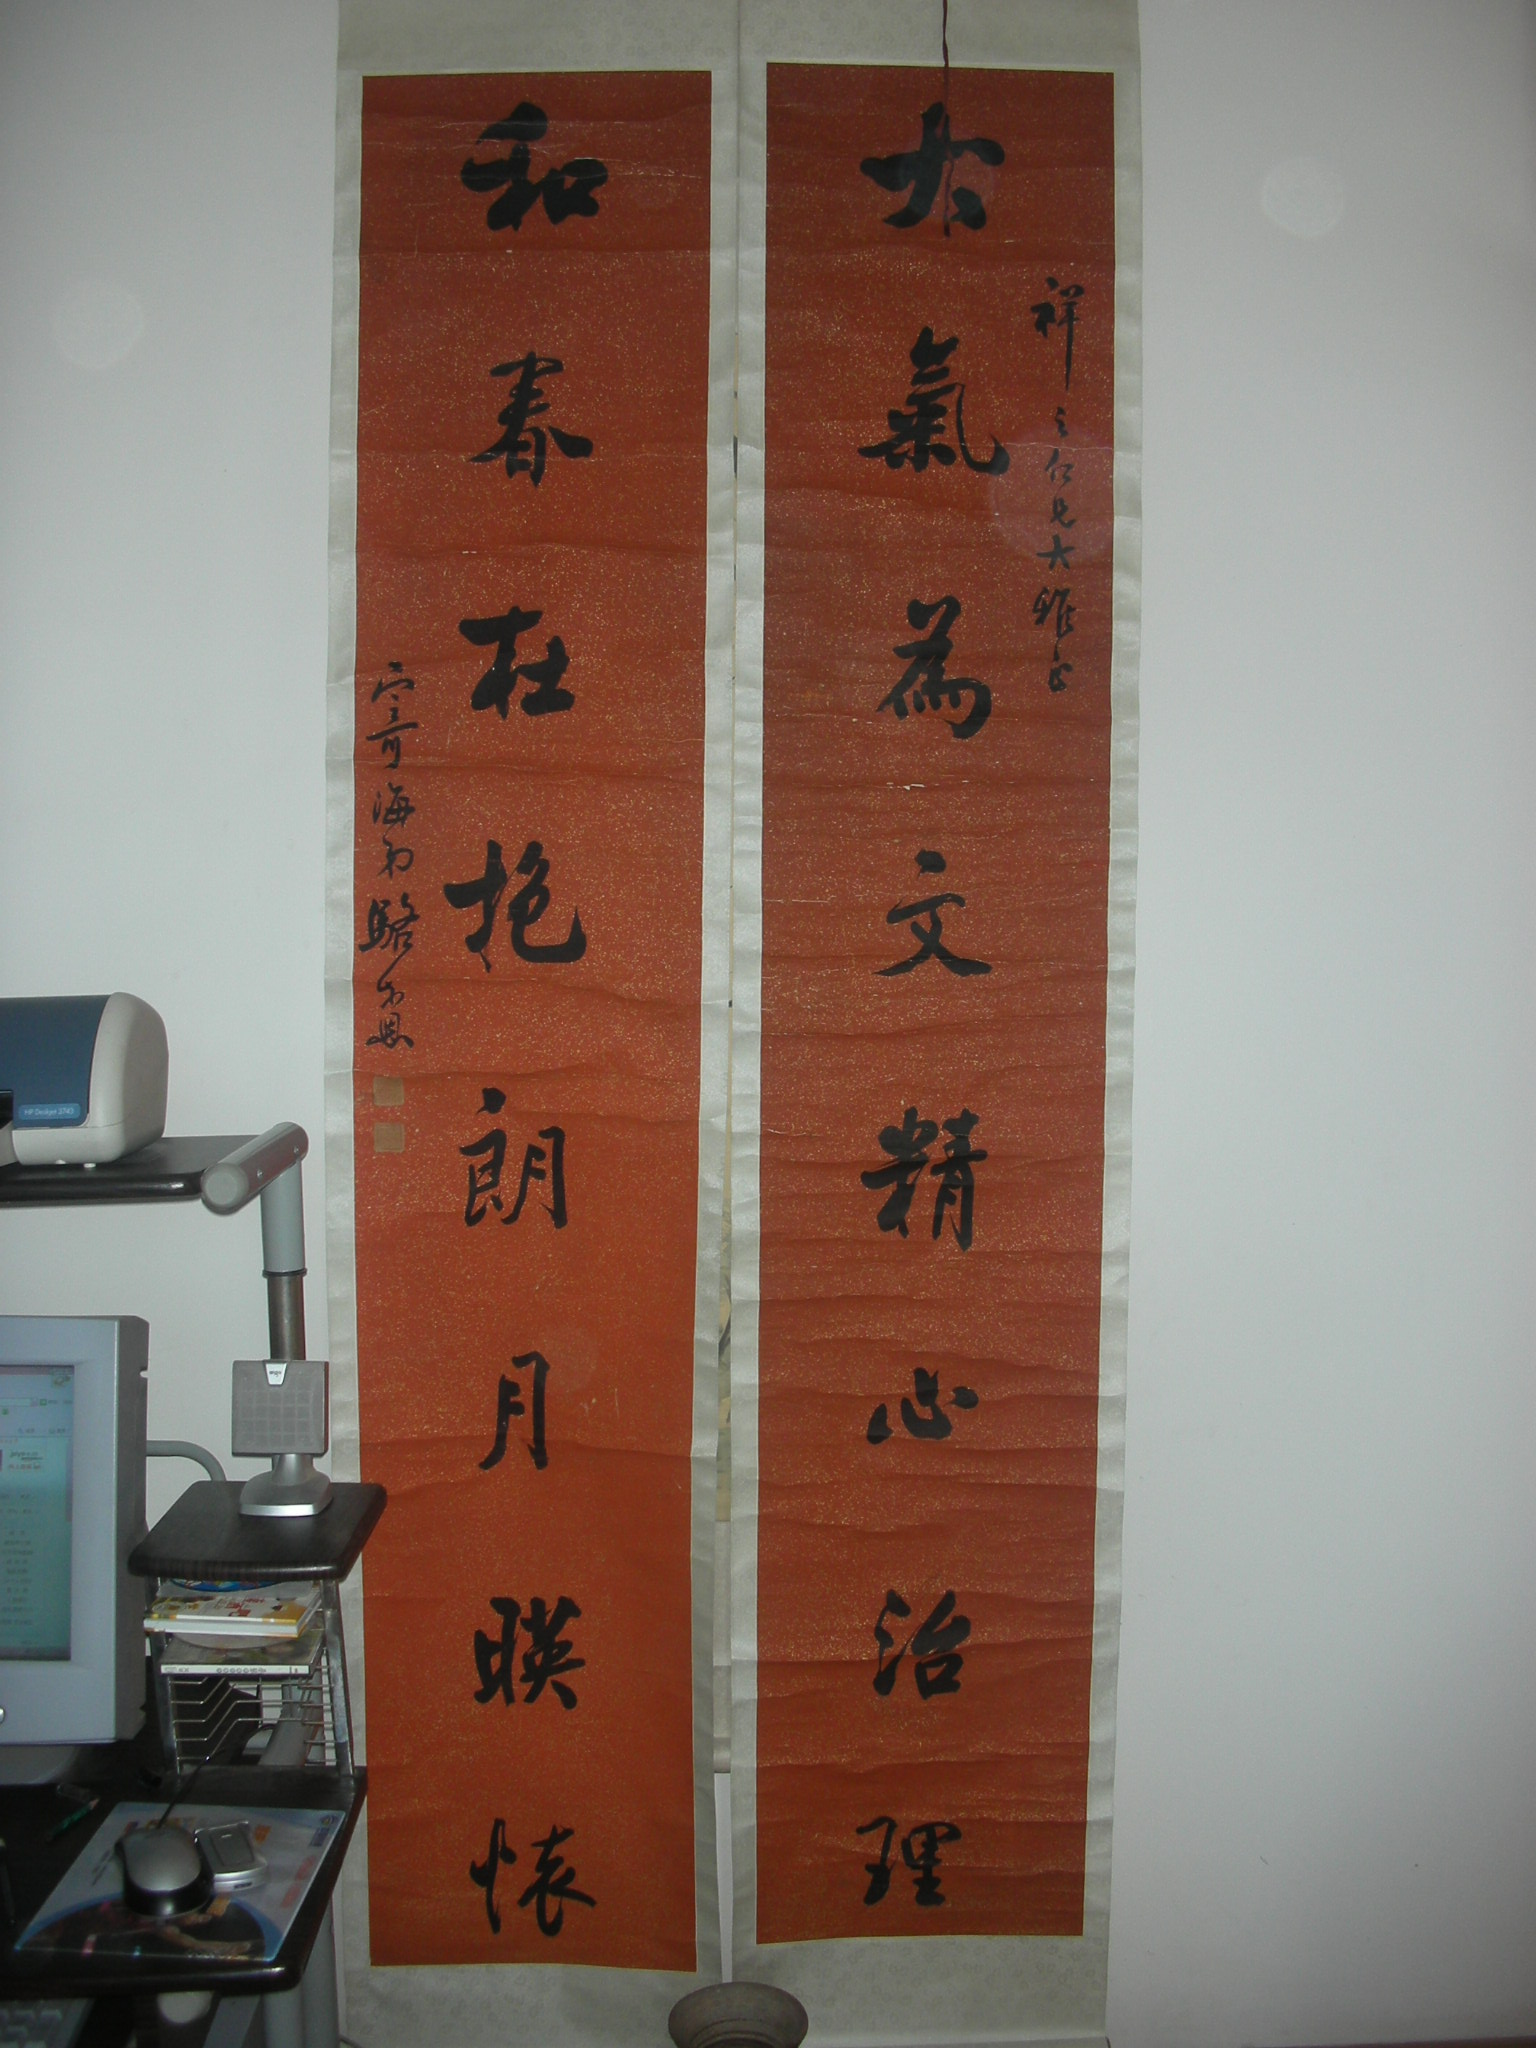 大氣為文精心治理
祥之仁兄大雅正
和春在抱朗月暎懷
寄海弟駱
hp Deskjet 3745